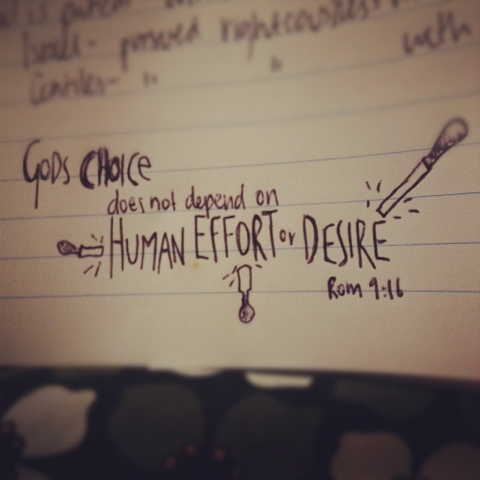 Israel - pursued righteousness
Gentiles - " " with
GODS CHOICE
does not depend on
HUMAN EFFORT or DESIRE
Rom 9:16